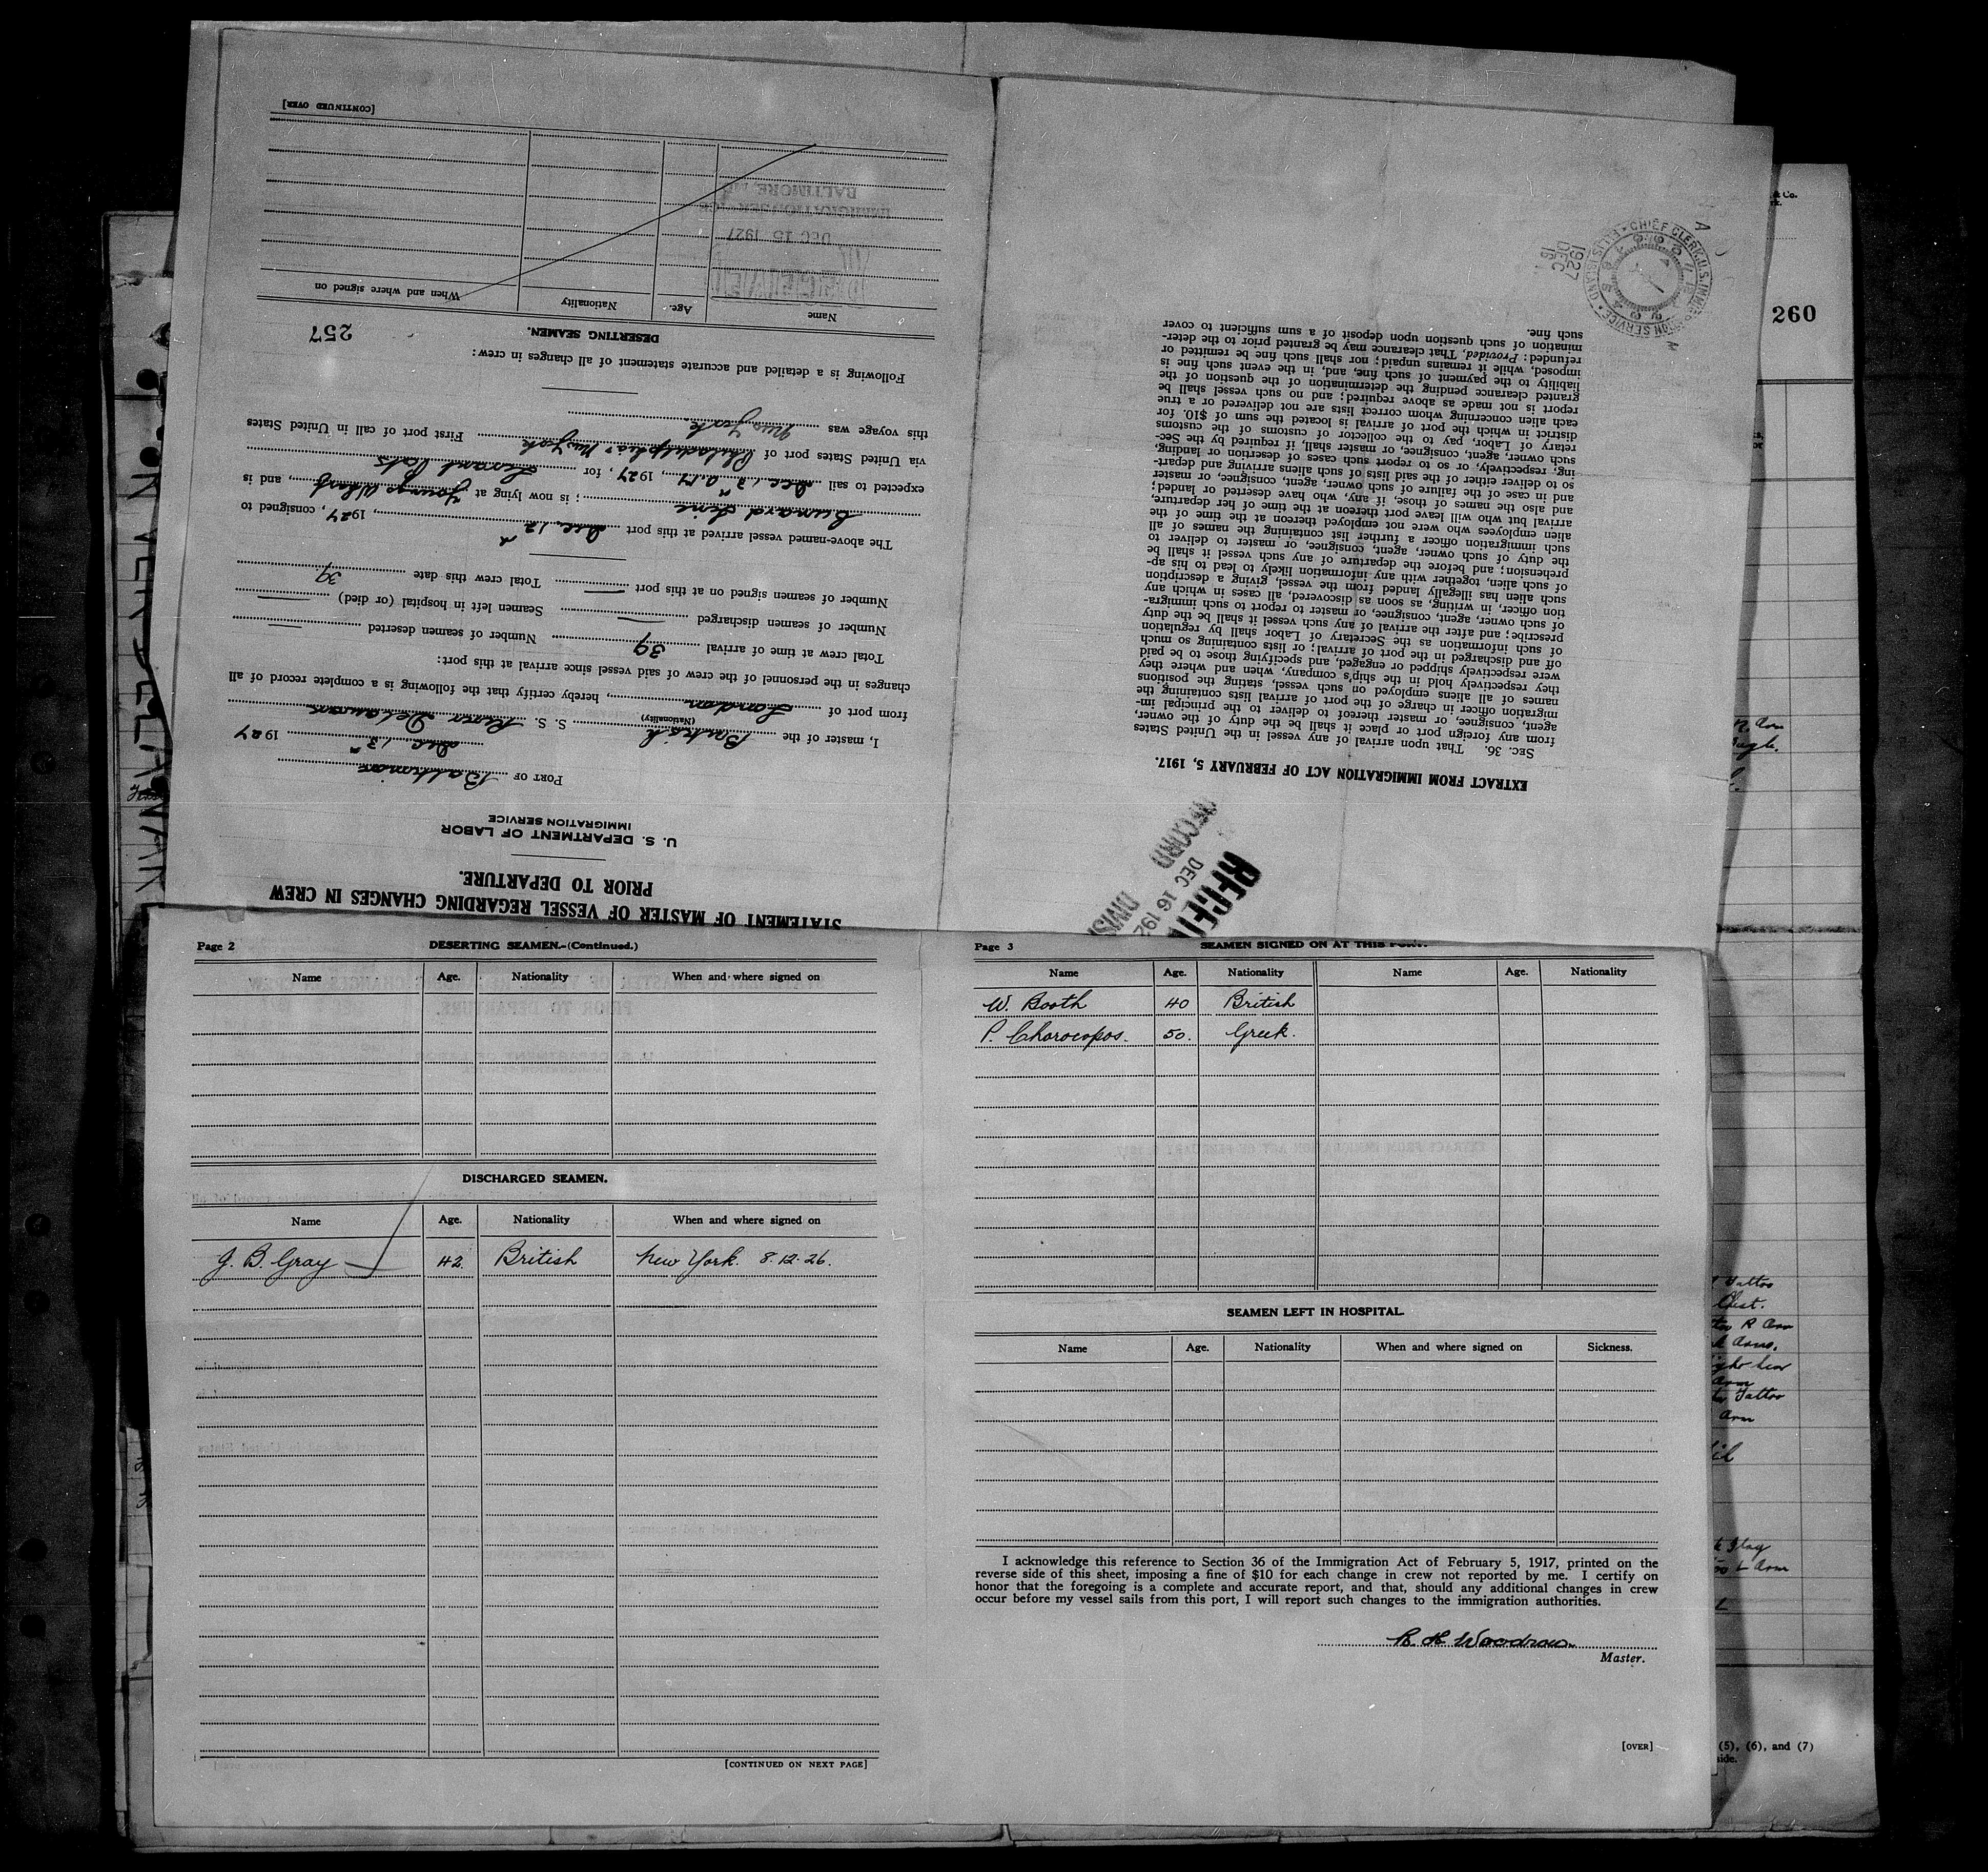 STATEMENT OF MASTER OF VESSEL REGARDING CHANGES IN CREW
PRIOR TO DEPARTURE.
U. S. DEPARTMENT OF LABOR
IMMIGRATION SERVICE
PORT OF Baltimore
Dec. 13th 1927
I, master of the British S. S. River Delaware
(Nationality)
from port of London, hereby certify that the following is a complete record of all
changes in the personnel of the crew of said vessel since arrival at this port:
Total crew at time of arrival 39 Number of seamen deserted —
Number of seamen discharged — Seamen left in hospital (or died) —
Number of seamen signed on at this port — Total crew this date 39
The above-named vessel arrived at this port Dec. 12th, 1927, consigned to
Cunard Line; is now lying at Youngs Wharf, and is
expected to sail Dec. 13th a.m., 1927, for
via United States port of Philadelphia & New York First port of call in United States
this voyage was New York
Following is a detailed and accurate statement of all changes in crew:
257
DESERTING SEAMEN.
Name Age. Nationality When and where signed on
RECEIVED
DEC 15 1927
IMMIGRATION SERVICE
BALTIMORE, MD.
[CONTINUED OVER]
RECEI
DEC 16 192
RECORD DIVISI
EXTRACT FROM IMMIGRATION ACT OF FEBRUARY 5, 1917.
SEC. 36. That upon arrival of any vessel in the United States
from any foreign port or place it shall be the duty of the owner,
agent, consignee, or master thereof to deliver to the principal im-
migration officer in charge of the port of arrival lists containing the
names of all aliens employed on such vessel, stating the positions
they respectively hold in the ship's company, when and where they
were respectively shipped or engaged, and specifying those to be paid
off and discharged in the port of arrival; or lists containing so much
of such information as the Secretary of Labor shall by regulation
prescribe; and after the arrival of any such vessel it shall be the duty
of such owner, agent, consignee, or master to report to such immigra-
tion officer, in writing, as soon as discovered, all cases in which any
such alien has illegally landed from the vessel, giving a description
of such alien, together with any information likely to lead to his ap-
prehension; and before the departure of any such vessel it shall be
the duty of such owner, agent, consignee, or master to deliver to
such immigration officer a further list containing the names of all
alien employees who were not employed thereon at the time of the
arrival but who will leave port thereon at the time of her departure,
and also the names of those, if any, who have deserted or landed;
and in case of the failure of such owner, agent, consignee, or master
so to deliver either of the said lists of such aliens arriving and depart-
ing, respectively, or so to report such cases of desertion or landing,
such owner, agent, consignee, or master shall, if required by the Sec-
retary of Labor, pay to the collector of customs of the customs
district in which the port of arrival is located the sum of $10. for
each alien concerning whom correct lists are not delivered or a true
report is not made as above required; and no such vessel shall be
granted clearance pending the determination of the question of the
liability to the payment of such fine, and, in the event such fine is
imposed, while it remains unpaid; nor shall such fine be remitted or
refunded: Provided, That clearance may be granted prior to the deter-
mination of such question upon deposit of a sum sufficient to cover
such fine.
1927
DEC
16
CHIEF CLERK, U.S. IMMIGRATION SERVICE ELLIS ISLAND
& Co.
260
Page 2 DESERTING SEAMEN.-(Continued.)
Name Age. Nationality When and where signed on
DISCHARGED SEAMEN.
Name Age. Nationality When and where signed on
J. B. Gray 42. British New York. 8.12.26.
[CONTINUED ON NEXT PAGE]
Page 3 SEAMEN SIGNED ON AT THIS PORT.
Name Age. Nationality Name Age. Nationality
W. Booth 40 British
P. Chorocopos. 50. Greek.
SEAMEN LEFT IN HOSPITAL.
Name Age. Nationality When and where signed on Sickness.
I acknowledge this reference to Section 36 of the Immigration Act of February 5, 1917, printed on the
reverse side of this sheet, imposing a fine of $10 for each change in crew not reported by me. I certify on
honor that the foregoing is a complete and accurate report, and that, should any additional changes in crew
occur before my vessel sails from this port, I will report such changes to the immigration authorities.
R. H. Woodrow
Master.
[OVER]
Tattoo
Chest.
R Arm
Tattoo
Arm
L Arm
(5), (6), and (7)
side.